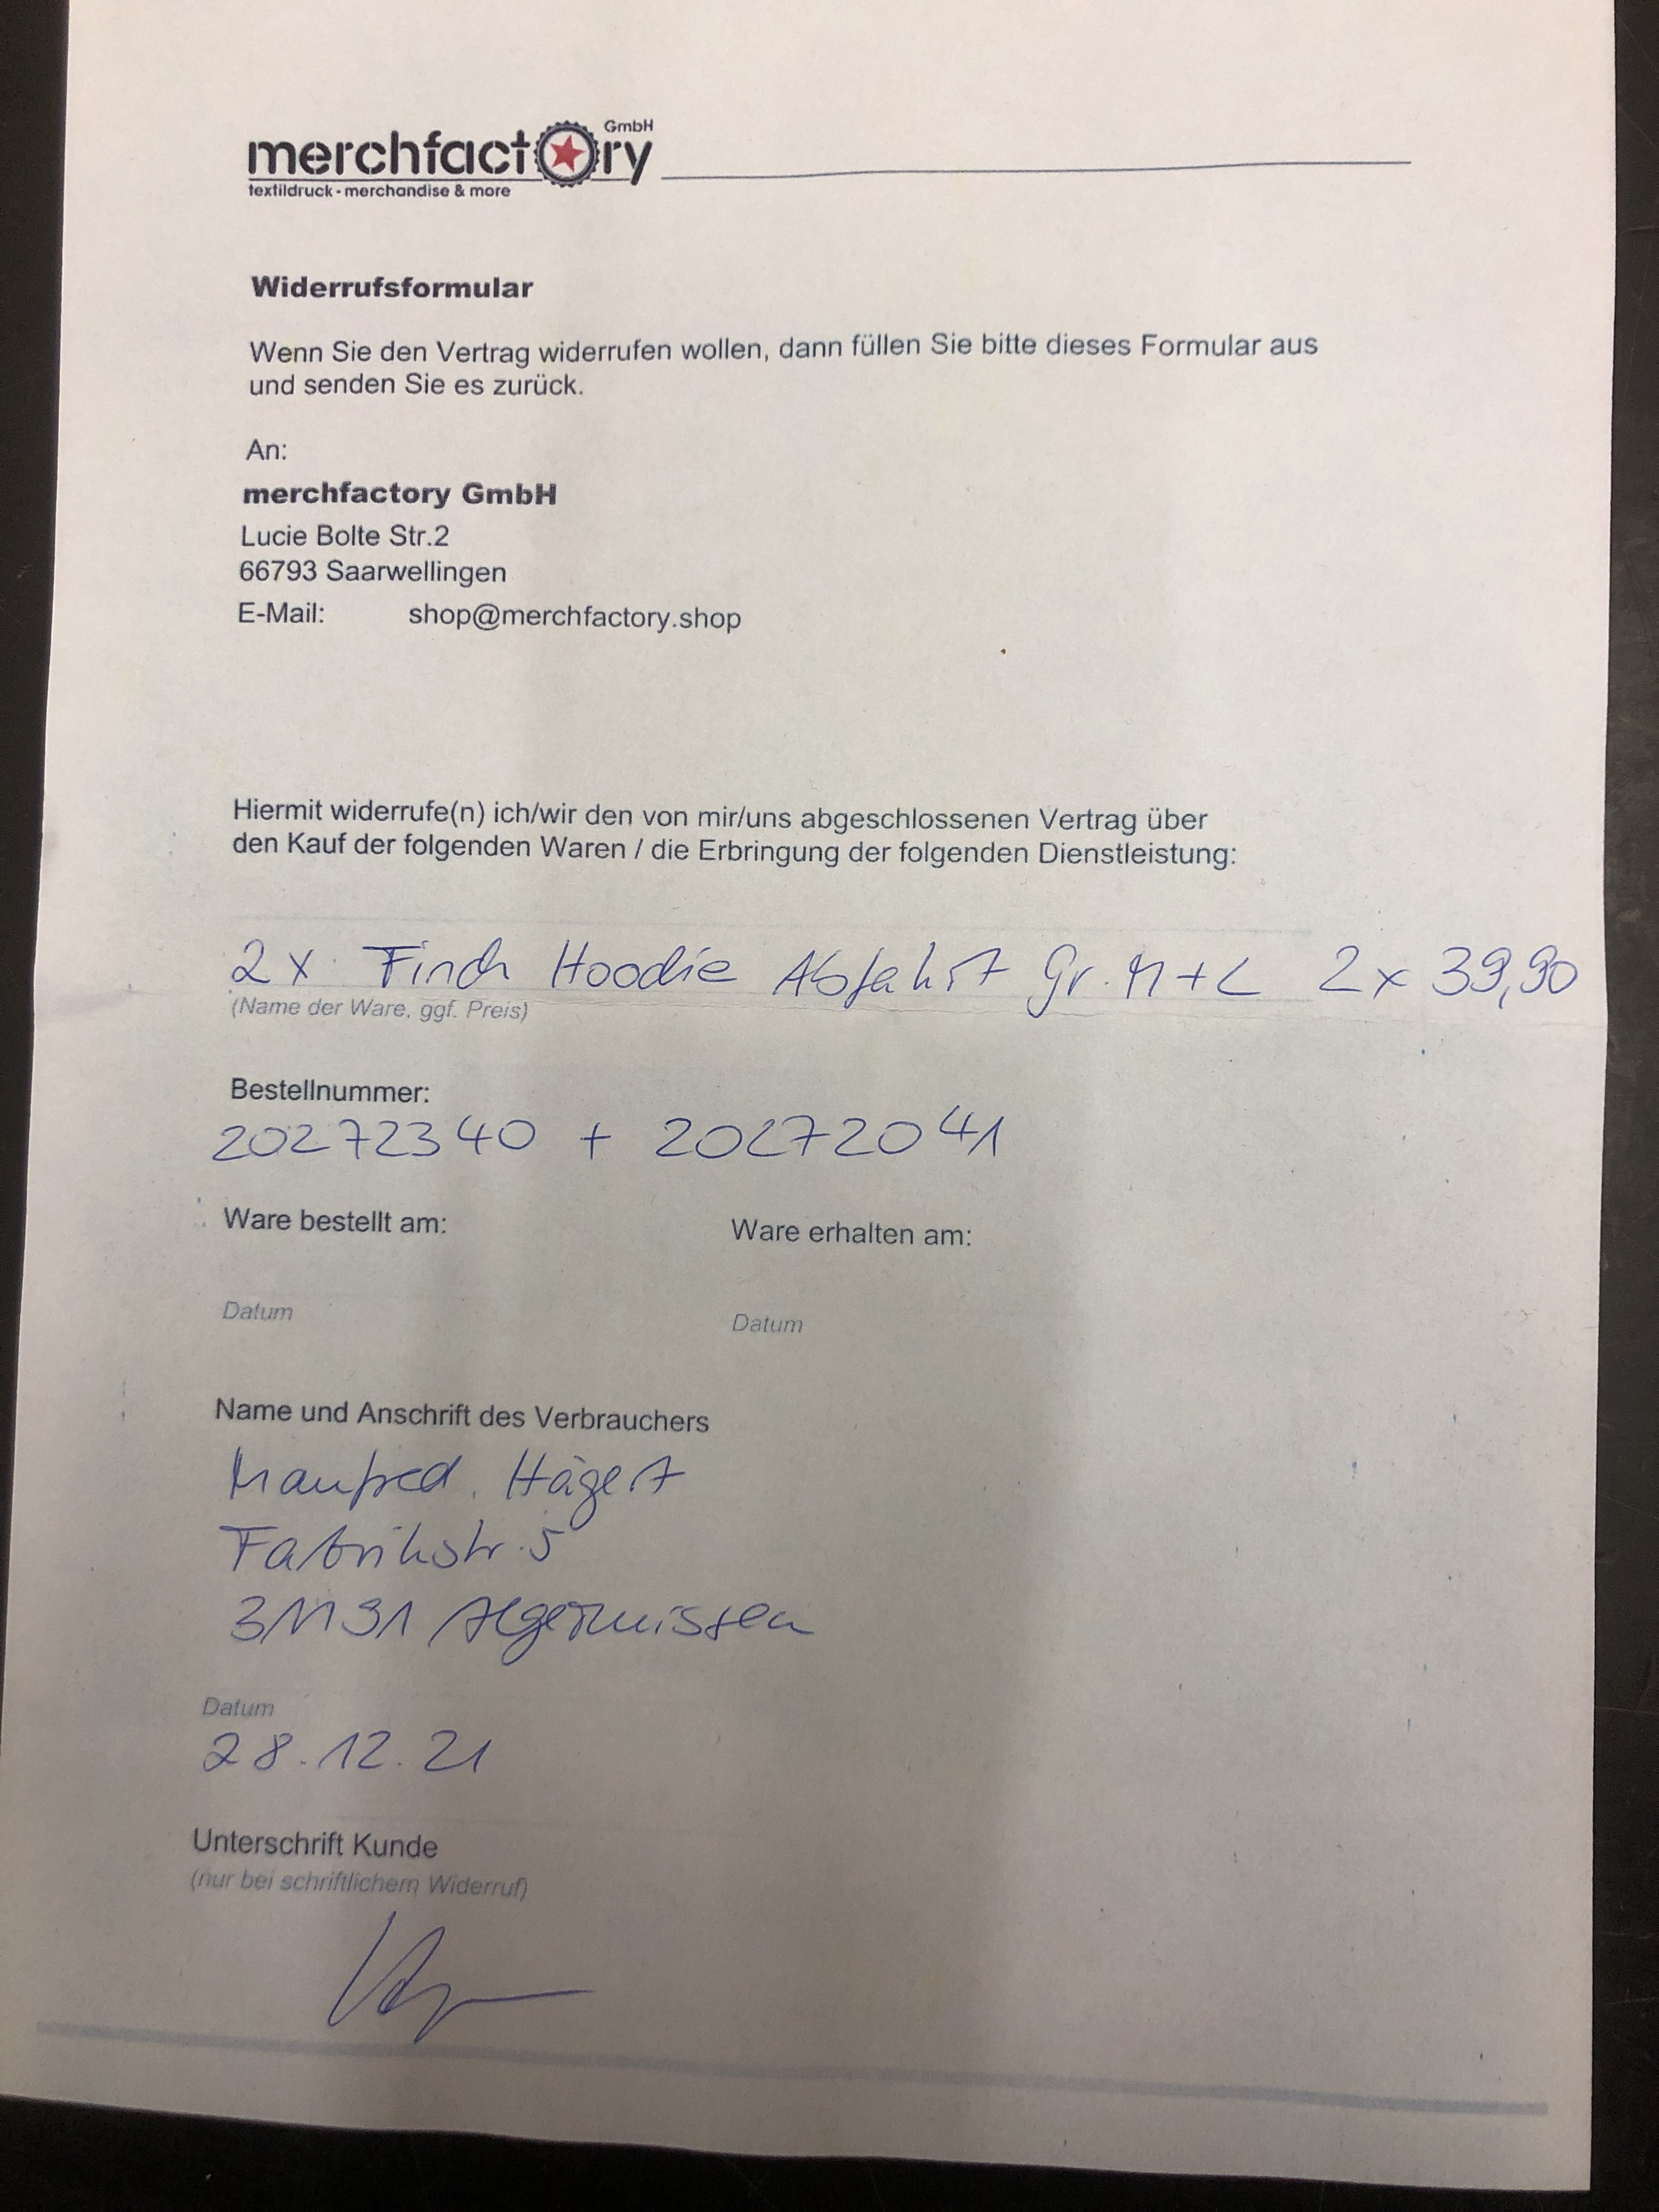 merchfactory GmbH
textildruck - merchandise & more
Widerrufsformular
Wenn Sie den Vertrag widerrufen wollen, dann füllen Sie bitte dieses Formular aus
und senden Sie es zurück.
An:
merchfactory GmbH
Lucie Bolte Str.2
66793 Saarwellingen
E-Mail: shop@merchfactory.shop
Hiermit widerrufe(n) ich/wir den von mir/uns abgeschlossenen Vertrag über
den Kauf der folgenden Waren / die Erbringung der folgenden Dienstleistung:
2x Finch Hoodie Abfahrt Gr. M + L 2x 39,90
(Name der Ware, ggf. Preis)
Bestellnummer:
20272340 + 20272041
Ware bestellt am: Ware erhalten am:
Datum Datum
Name und Anschrift des Verbrauchers
Manfred Hägert
Fabrikstr. 5
31191 Algermissen
Datum
28.12.21
Unterschrift Kunde
(nur bei schriftlichem Widerruf)